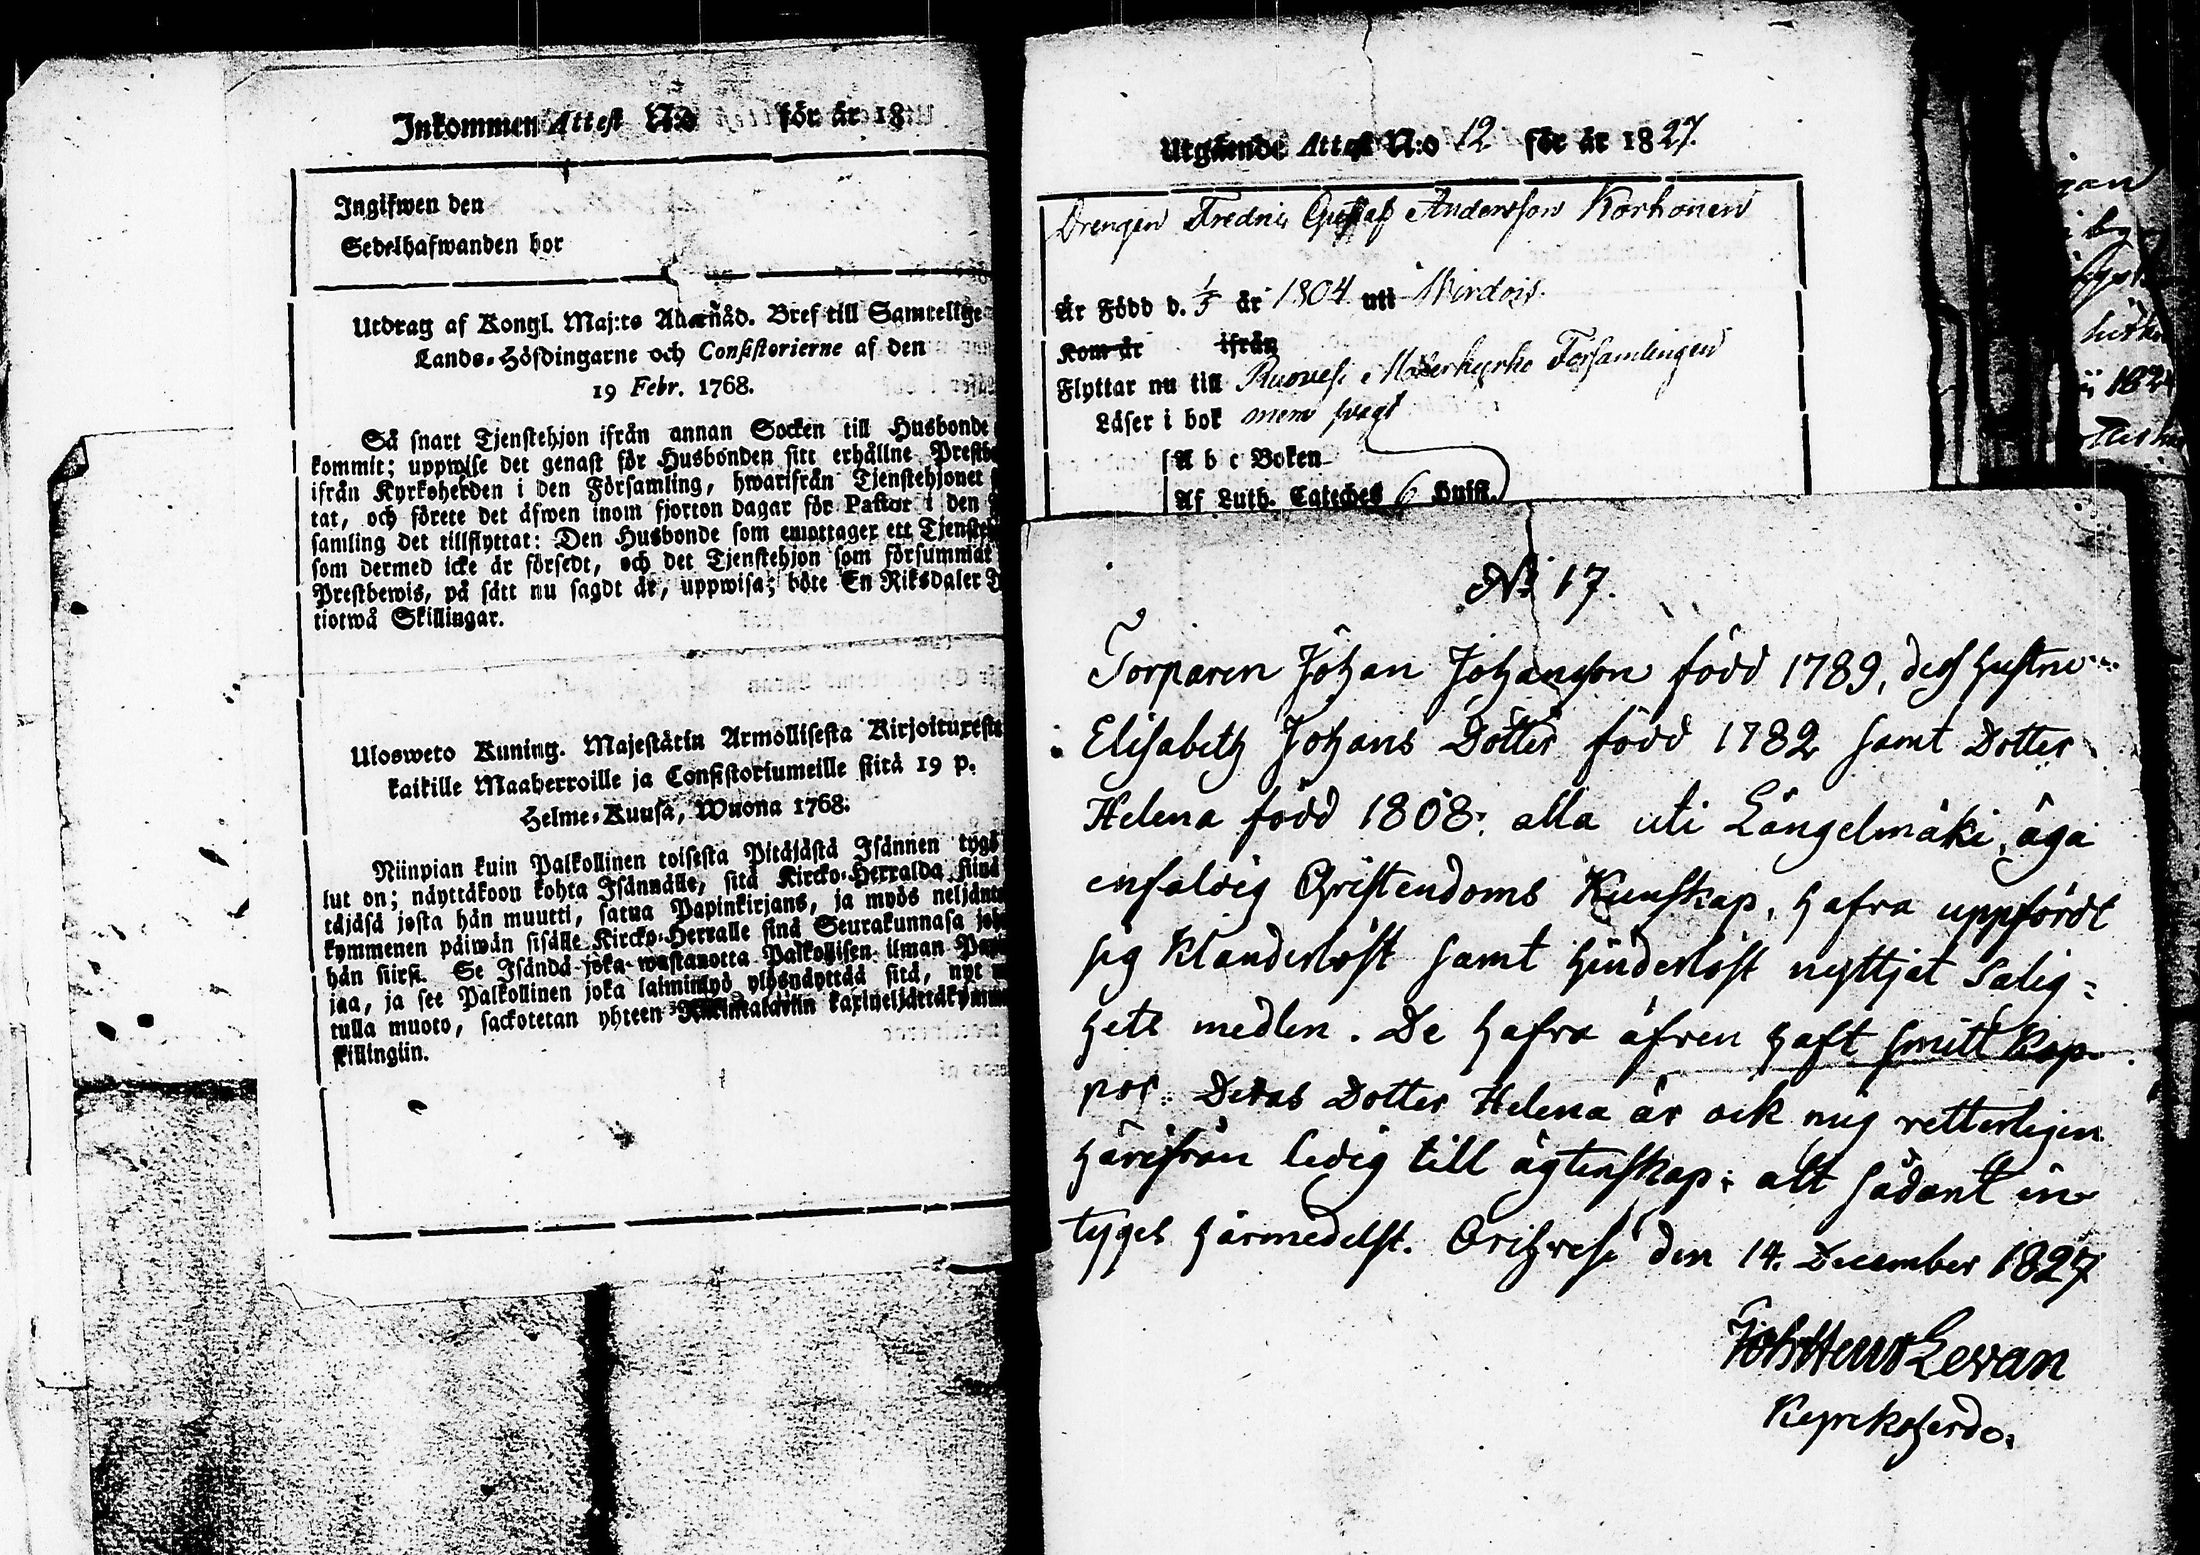 Inkommen Attest N:o för år 18
Ingifwen den
Sedelhafwanden bor
Utdrag af Kongl. Maj:ts Allernåd. Bref till Samtelige
Lands-Höfdingarne och Consistorierne af den
19 Febr. 1768.
Så snart Tjenstehjon ifrån annan Socken till Husbonde
kommit; uppwise det genast för Husbonden sitt erhållne
ifrån Kyrkoherden i den Församling, hwarifrån Tjenstehjonet
tat, och förete det äfwen inom fjorton dagar för Pastor i den
samling det tillflyttat: Den Husbonde som emottager ett
som dermed icke är försedt, och det Tjenstehjon som försummat
Prestbewis, på sätt nu sagdt är, uppwisa; böte En Riksdaler
tiotwå Skillingar.
Ulosweto Kuning. Majestätin Armollisesta
kaikille Maaherroille ja Consistoriumeille siitä 19 p.
Helme-Kuusa, Wuona 1768.
Niinpian kuin Palkollinen toisesta Pitäjästä Isännen tygö
lut on; näyttäköön kohta Isännälle, sitä Kircko-Herralda siinä
täjäsä josta hän muutti, saatua Papinkirjans, ja myös
kymmenen päiwän sisälle Kircko-Herralle siinä Seurakunnasa
hän siirsi. Se Isändä joka wastanotta Palkollisen ilman
jaa, ja see Palkollinen joka laiminlyö ylösnäyttää sitä, nyt
tulla muoto, sackotetan yhteen
skillingiin.
Utgående Attest N:o 12 för år 1827.
Drengen Fredric Gustaf Andersson Korhonen
Är Född d. 1/5 år 1804 uti Wirdois.
Kom år ifrån
Flyttar nu till Ruovesi Moderkyrko Församlingen
Läser i bok svagt
A b c Boken
Af Luth. Cateches 6 Hufst.
No 17.
Torparen Johan Johansson född 1789, dess hustru
Elisabeth Johans Dotter född 1782 samt Dotter
Helena född 1808: alla uti Längelmäki, äga
enfaldig Christendoms Kunskap, hafva uppfördt
sig Klanderlöst samt hinderlöst nyttjat Salig=
hets medlen. De hafva äfven haft smitt Kop-
por. Deras Dotter Helena är ock mig vetterligen
härifrån ledig till ägtenskap: att sådant in
tyges härmedelst. Orihvesi den 14. December 1827
Joh Henr Levan
Kyrkoherde.